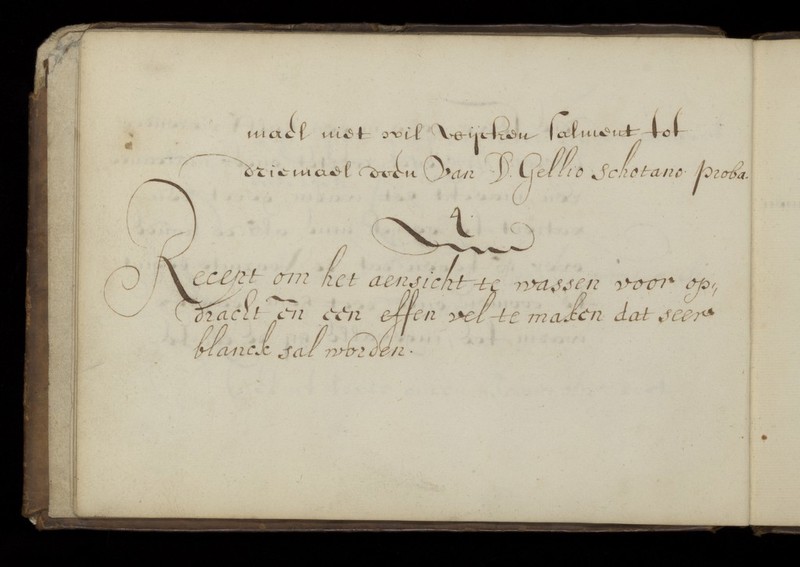 mael niet wil wijcken salment tot
driemael doen Van D. Gellio Schotano proba.
4.
Recept om het aensicht te wassen voor op,,
dracht en een effen vel te maken dat seer
blanck sal worden.